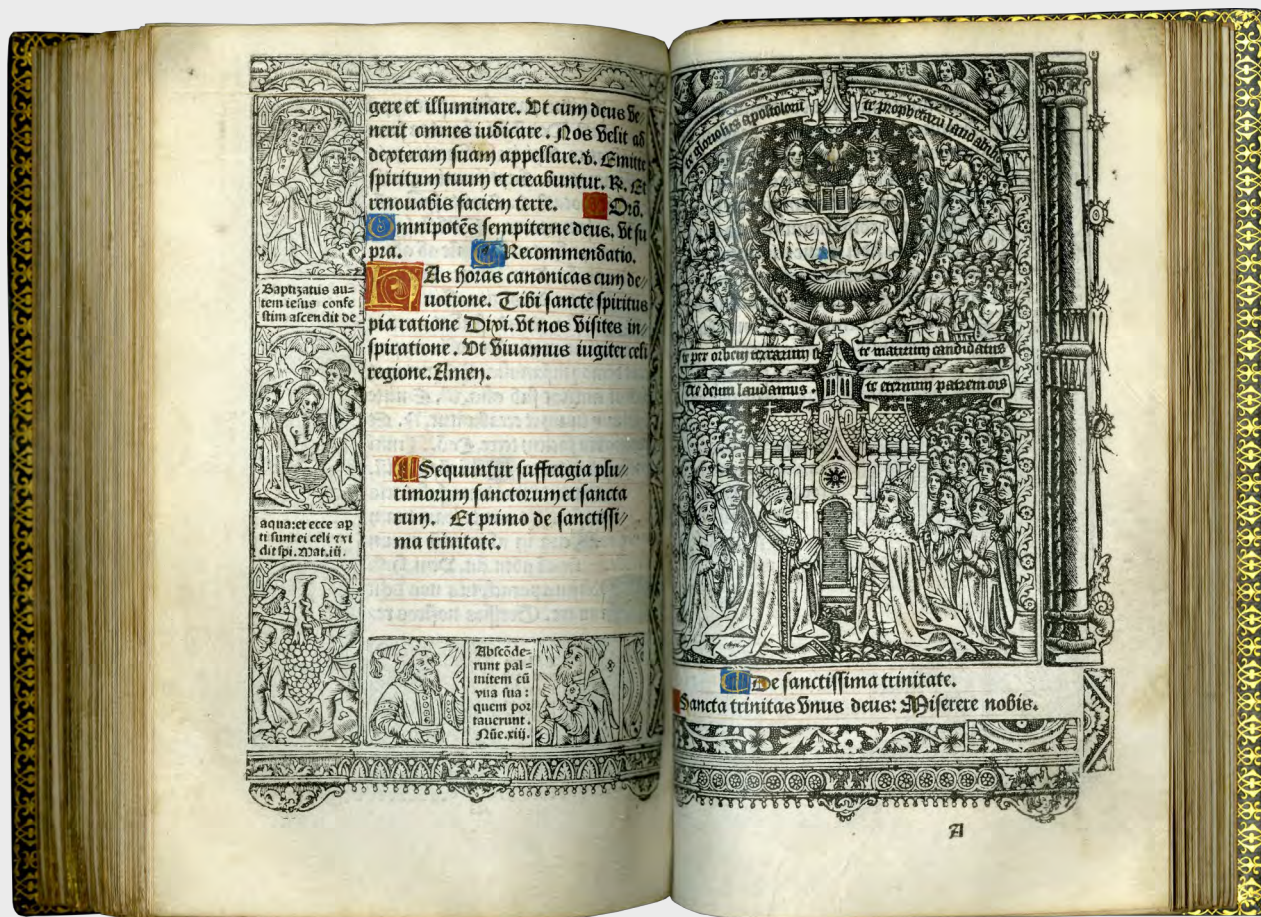 gere et illuminare. Vt cum deus ve/
nerit omnes iudicare. Nos velit ad
dexteram suam appellare. v. Emitte
spiritum tuum et creabuntur. R. Et
renouabis faciem terre. Orō.
Omnipotēs sempiterne deus. vt su
pra. Recommendatio.
HAs horas canonicas cum de/
uotione. Tibi sancte spiritus
pia ratione Dixi. vt nos visites in/
spiratione. Vt viuamus iugiter celi
regione. Amen.
Sequuntur suffragia plu/
rimorum sanctorum et sancta
rum. Et primo de sanctissi/
ma trinitate.
Baptizatus au=
tem iesus confe
stim ascendit de
aqua: et ecce ap
ti sunt ei celi ⁊ vi
dit spi. Mat. iii.
Abscōde=
runt pal=
mitem cū
vua sua:
quem por
tauerunt.
Nūe. xiij.
te gloriosus apostolorū te prophetarū laudabil
te per orbem terrarum te martirum candidatus
Te deum laudamus. te eternum patrem ois
De sanctissima trinitate.
Sancta trinitas vnus deus: Miserere nobis.
A